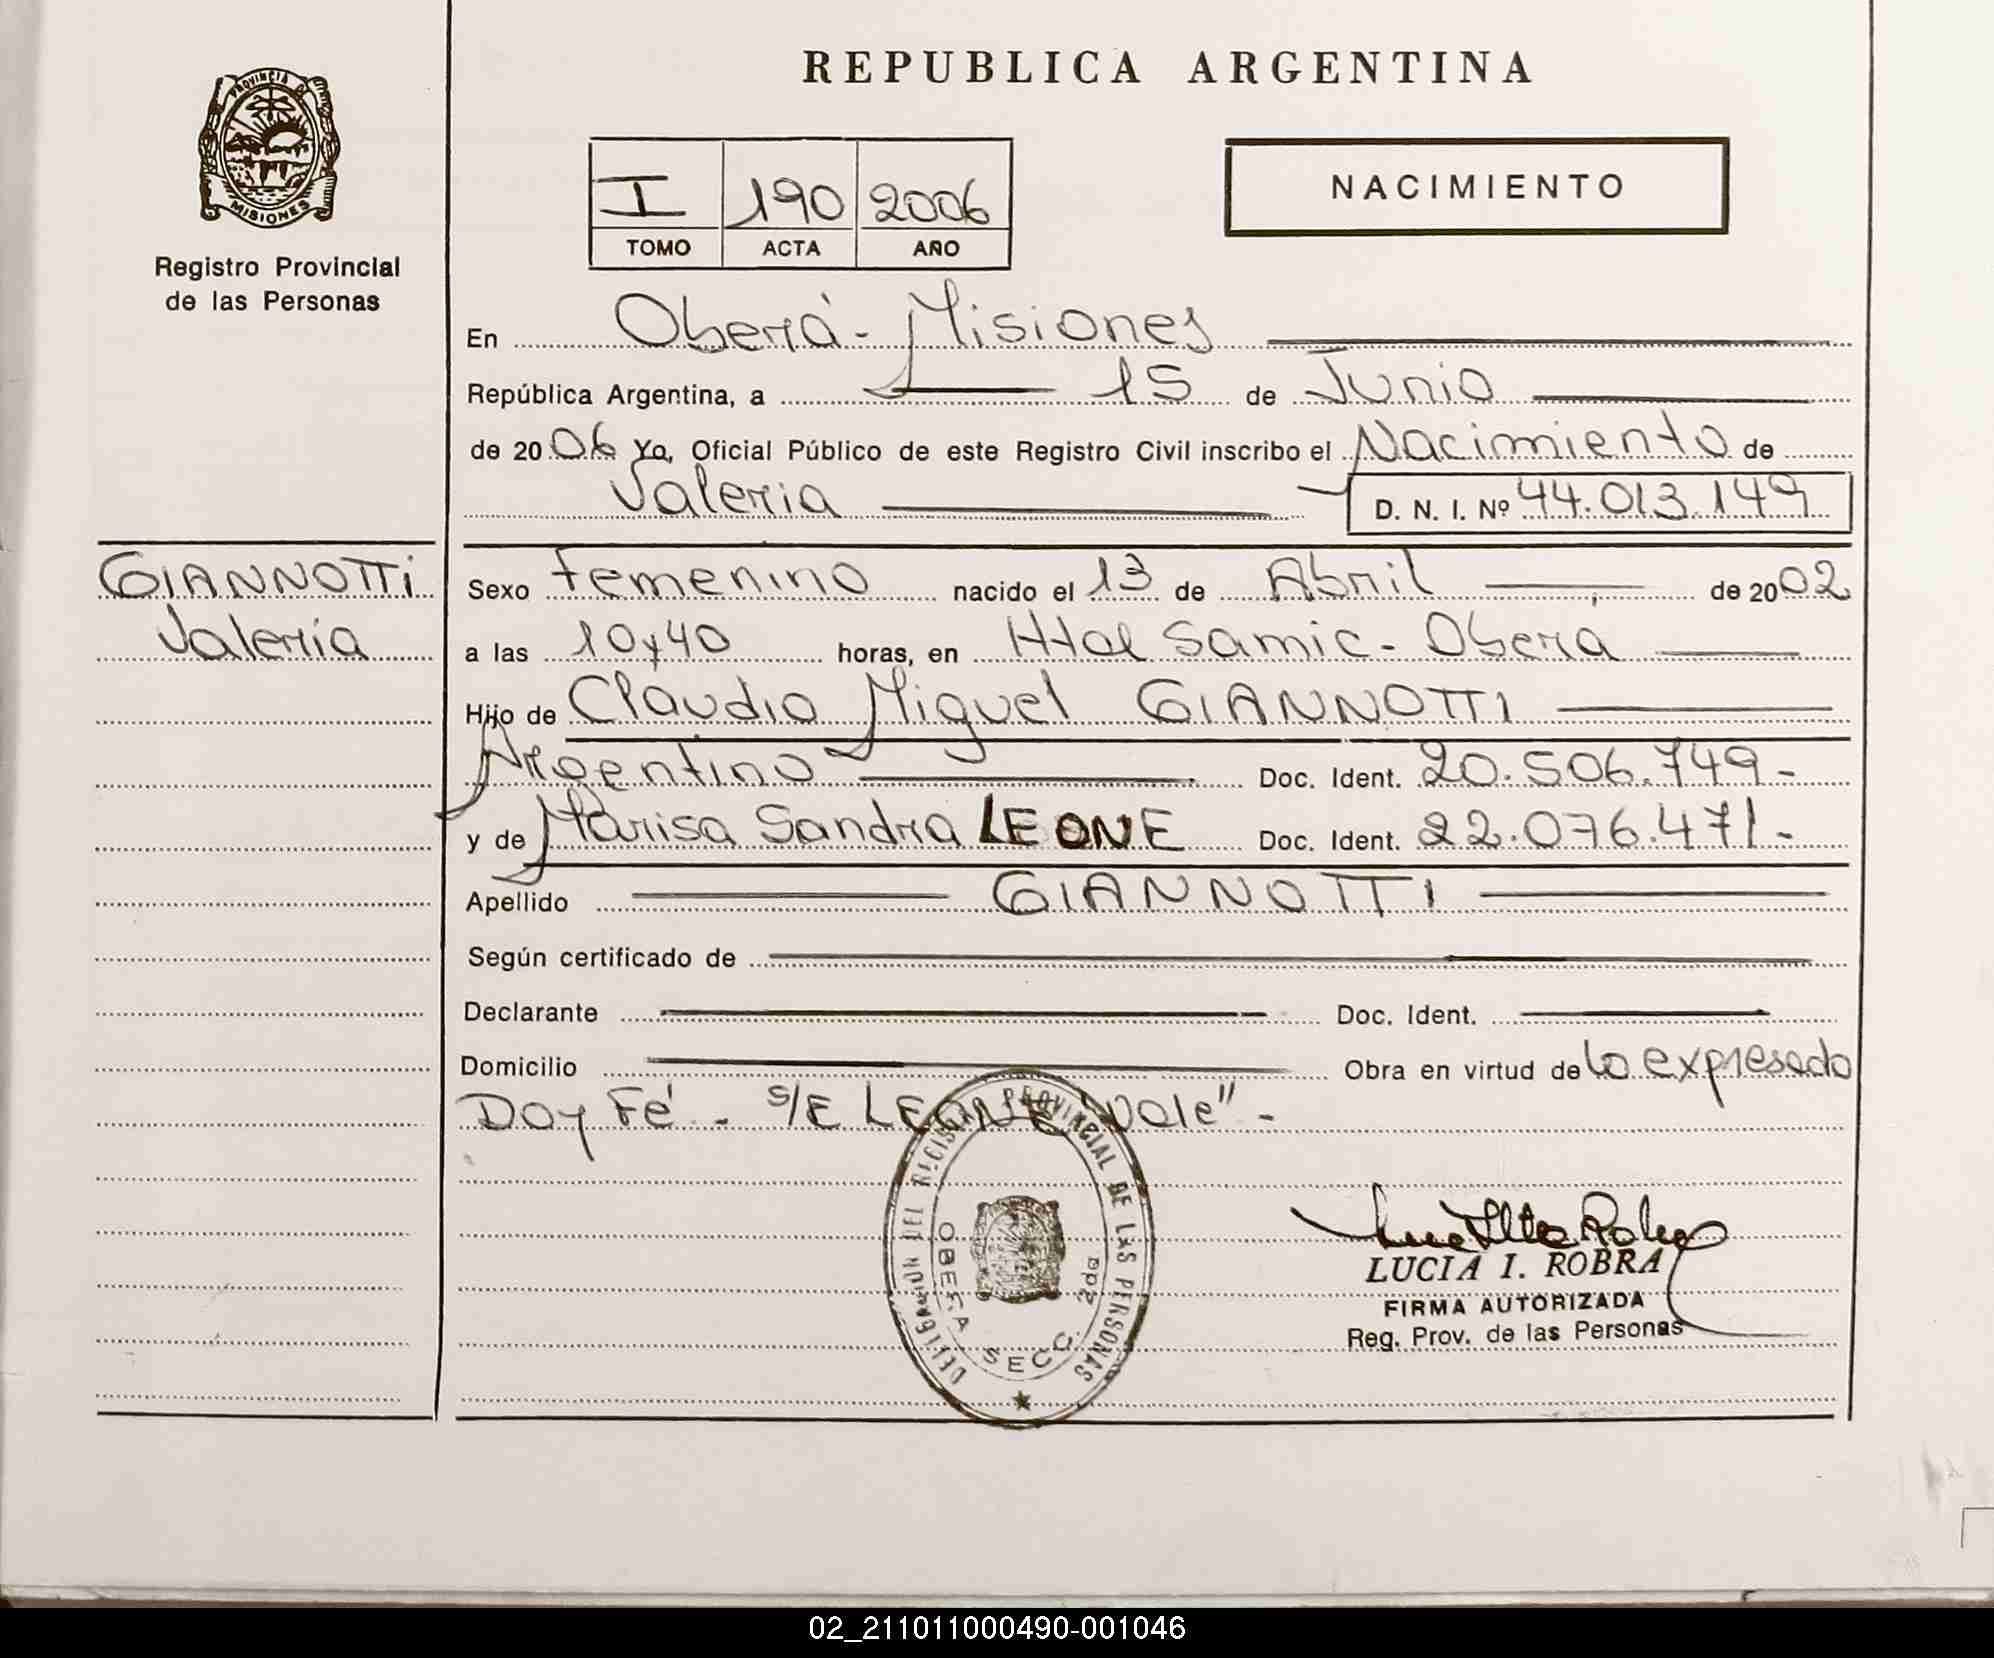 REPUBLICA ARGENTINA
PROVINCIA DE
MISIONES
Registro Provincial
de las Personas
I 190 2006
TOMO ACTA AÑO
NACIMIENTO
En Oberá - Misiones
República Argentina, a 15 de Junio
de 2006 Yo, Oficial Público de este Registro Civil inscribo el Nacimiento de
Valeria D. N. I. Nº 44.013.149
GIANNOTTI
Valeria
Sexo Femenino nacido el 13 de Abril de 2002
a las 10y40 horas, en Htal Samic - Oberá
Hijo de Claudio Miguel GIANNOTTI
Argentino Doc. Ident. 20.506.749-
y de Marisa Sandra LEONE Doc. Ident. 22.076.471-
Apellido GIANNOTTI
Según certificado de
Declarante Doc. Ident.
Domicilio Obra en virtud de lo expresado
Doy Fé - S/E LEONE "Vale" -
DELEGACION DEL REGISTRO PROVINCIAL DE LAS PERSONAS
OBERA SECC. 2da
LUCIA I. ROBRA
FIRMA AUTORIZADA
Reg. Prov. de las Personas
02_211011000490-001046